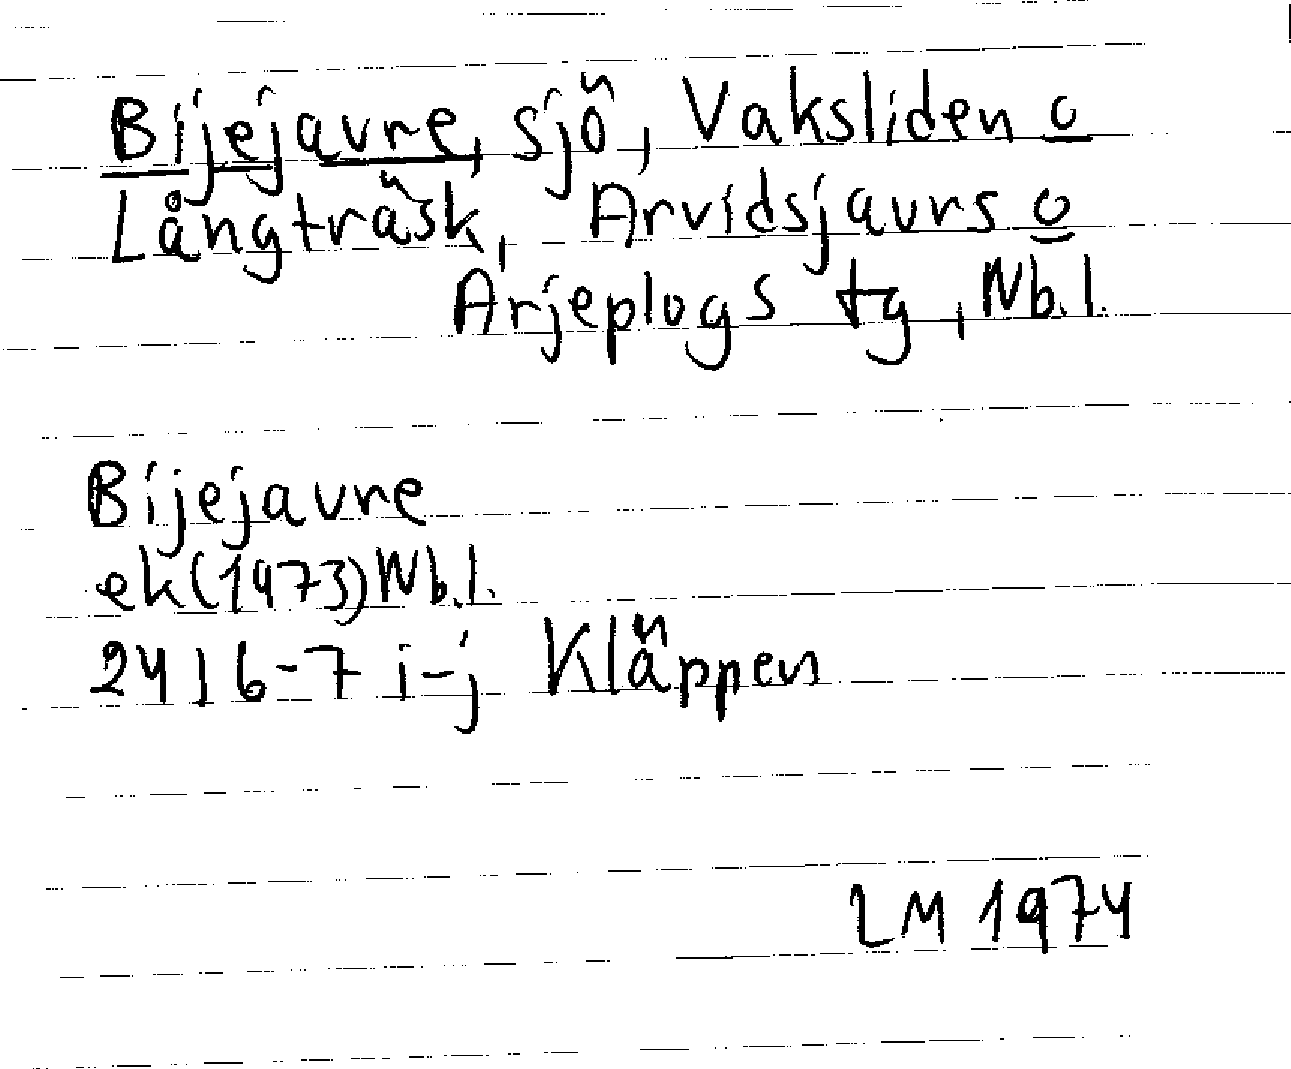 Bijejavre, sjö, Vaksliden o
Långträsk, Arvidsjaurs o
Arjeplogs tg, Nb.l.
Bijejavre
ek(1973)Nb.l.
24 I 6-7 i-j Kläppen
LM 1974